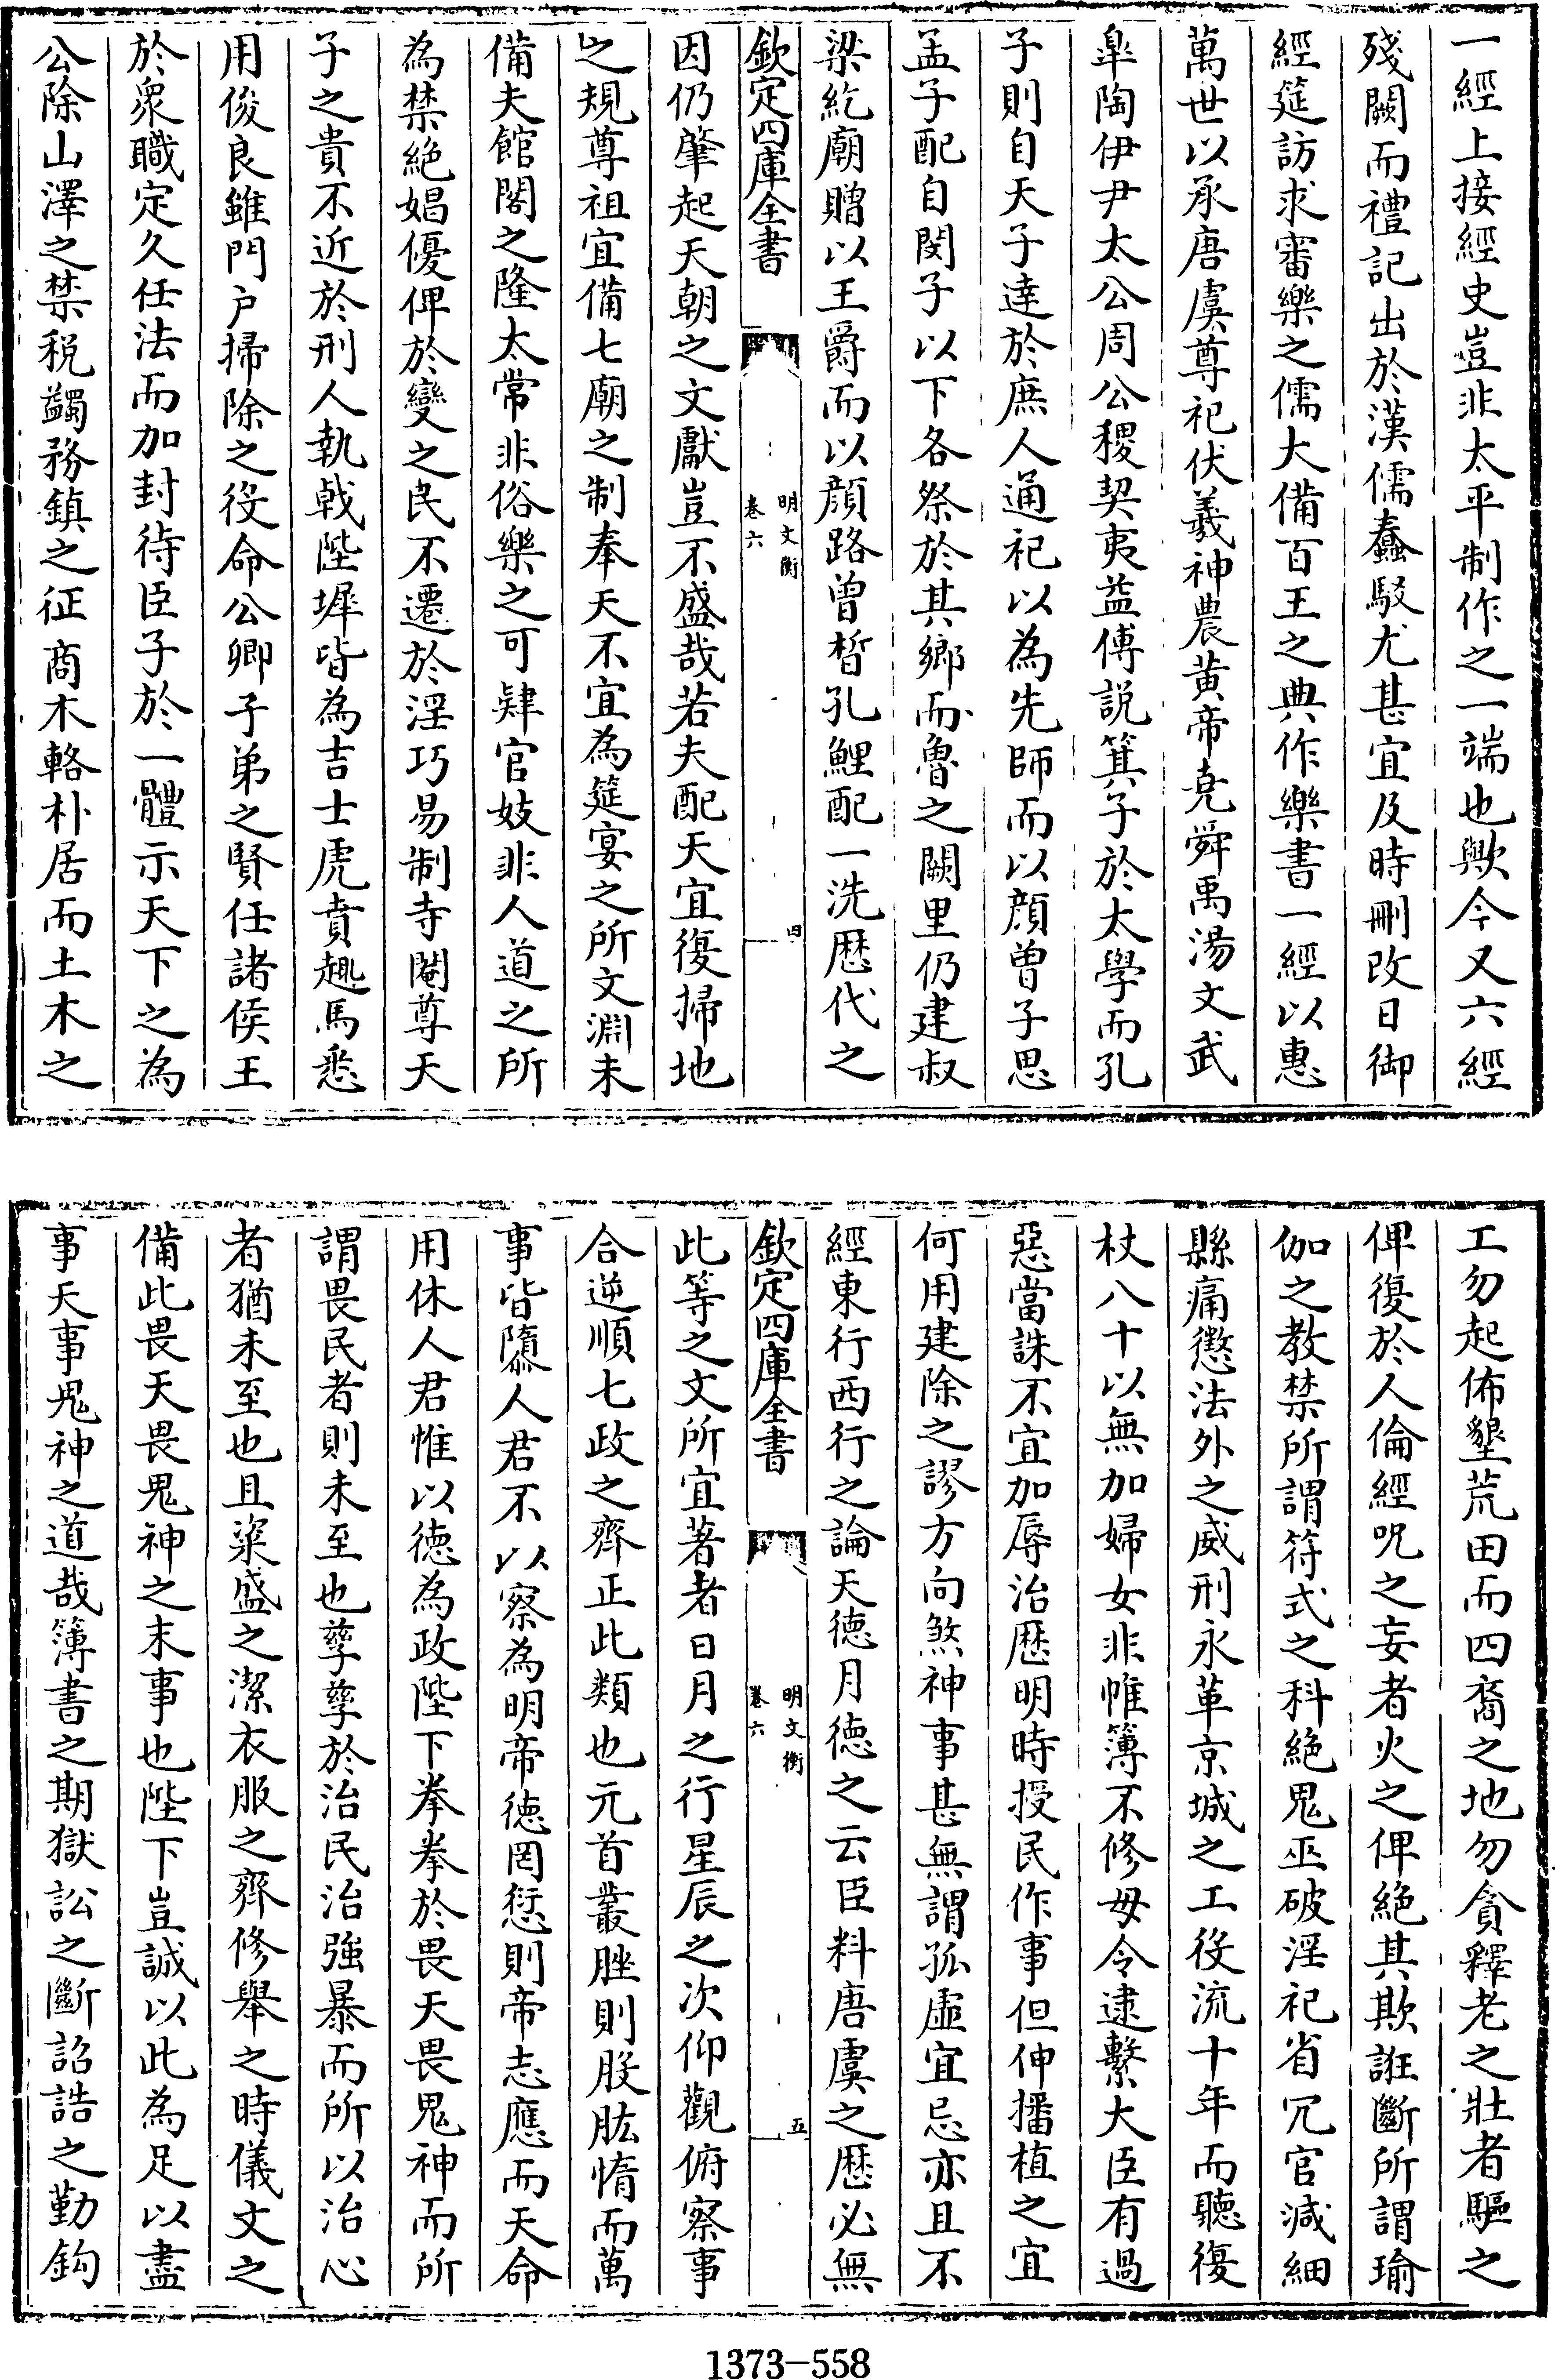 一經上接經史豈非太平制作之一端也歟今又六經
殘闕而禮記出於漢儒蠢駁尤甚宜及時刪改日御
經筵訪求審樂之儒大備百王之典作樂書一經以惠
萬世以承唐虞尊祀伏羲神農黄帝堯舜禹湯文武
臯陶伊尹太公周公稷契夷益傅説箕子於太學而孔
子則自天子達於庶人通祀以為先師而以顔曾子思
孟子配自閔子以下各祭於其鄉而魯之闕里仍建叔
梁紇廟贈以王爵而以顔路曾晳孔鯉配一洗歴代之
欽定四庫全書
明文衡
卷六
四
因仍肇起天朝之文獻豈不盛哉若夫配天宜復掃地
之規尊祖宜備七廟之制奉天不宜為筵宴之所文淵未
備夫館閣之隆太常非俗樂之可肄官妓非人道之所
為禁絶娼優俾於變之民不遷於淫巧易制寺閹尊天
子之貴不近於刑人執戟陛墀皆為吉士虎賁趣馬悉
用俊良雖門户掃除之役命公卿子弟之賢任諸侯王
於衆職定久任法而加封待臣子於一體示天下之為
公除山澤之禁税蠲務鎮之征商木輅朴居而土木之
工勿起佈墾荒田而四裔之地勿貪釋老之壯者驅之
俾復於人倫經咒之妄者火之俾絶其欺誑斷所謂瑜
伽之教禁所謂符式之科絶鬼巫破淫祀省冗官減細
縣痛懲法外之威刑永革京城之工役流十年而聽復
杖八十以無加婦女非帷簿不修毋令逮繫大臣有過
惡當誅不宜加辱治歴明時授民作事但伸播植之宜
何用建除之謬方向煞神事甚無謂孤虛宜忌亦且不
經東行西行之論天徳月徳之云臣料唐虞之歴必無
欽定四庫全書
明文衡
卷六
五
此等之文所宜著者日月之行星辰之次仰觀俯察事
合逆順七政之齊正此類也元首叢脞則股肱惰而萬
事皆隳人君不以察為明帝徳罔愆則帝志應而天命
用休人君惟以徳為政陛下拳拳於畏天畏鬼神而所
謂畏民者則未至也孳孳於治民治強暴而所以治心
者猶未至也且粢盛之潔衣服之齊修舉之時儀文之
備此畏天畏鬼神之末事也陛下豈誠以此為足以盡
事天事鬼神之道哉簿書之期獄訟之斷詔誥之勤鈎
1373-558